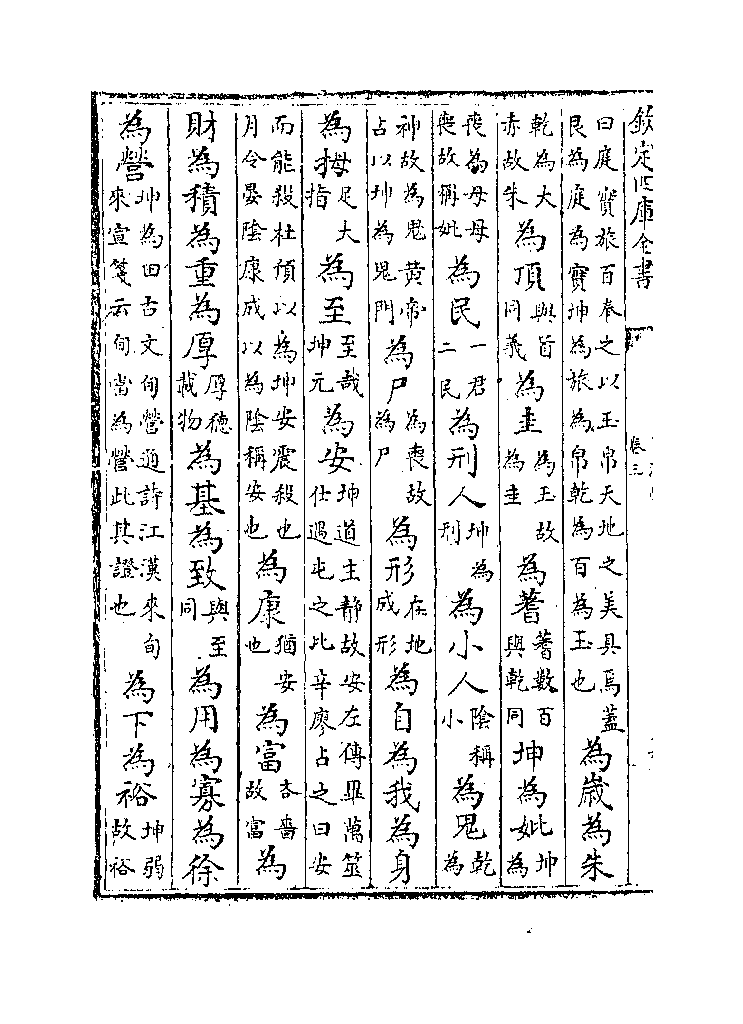 欽定四庫全書
卷三
曰庭實旅百奉之以玉帛天地之美具焉蓋艮為庭為實坤為旅為帛乾為百為玉也為歲為朱
乾為大赤故朱為頂與首同義為圭為玉故為圭為蓍蓍數百與乾同坤為妣坤為
喪為母母喪故稱妣為民一君二民為刑人坤為刑為小人陰稱小為鬼乾為
神故為鬼黃帝占以坤為鬼門為尸為喪故為尸為形在地成形為自為我為身
為拇足大指為至至哉坤元為安坤道主靜故安左傳畢萬筮仕遇屯之比辛廖占之曰安
而能殺杜預以為坤安震殺也月令晏陰康成以為陰稱安也為康猶安也為富吝嗇故富為
財為積為重為厚厚德載物為基為致與至同為用為寡為徐
為營坤為田古文旬營通詩江漢來旬來宣箋云旬當為營此其證也為下為裕坤弱故裕